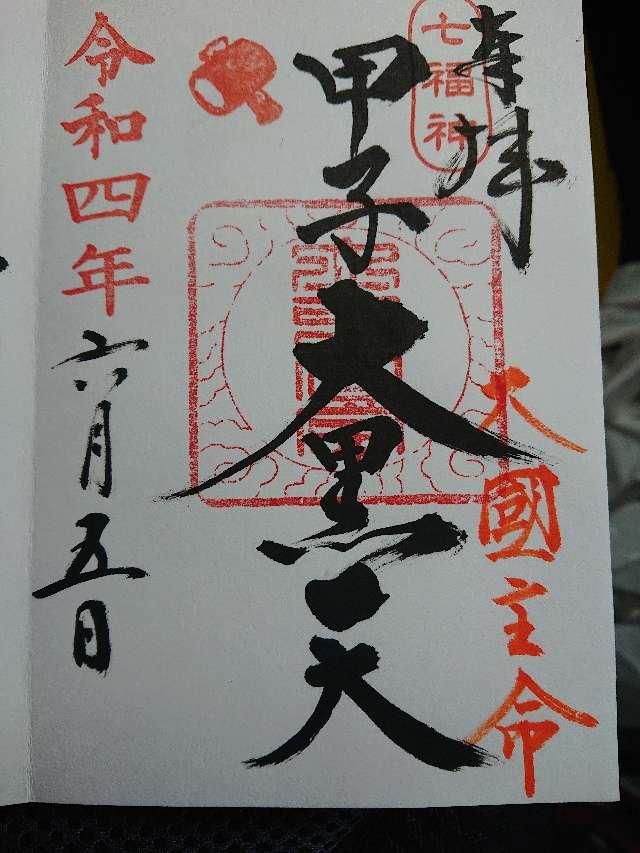 奉拝
七福神
大國主命
甲子大黒天
令和四年
六月五日